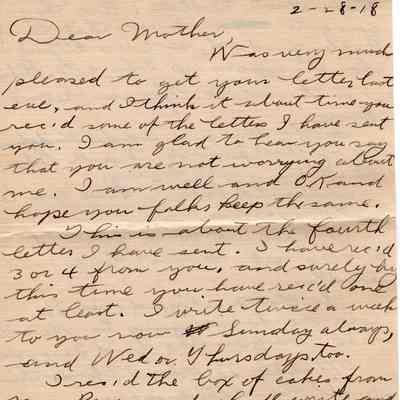 2-28-18
Dear Mother,
Was very much
pleased to get your letter last
eve, and I think it about time you
rec'd some of the letters I have sent
you. I am glad to hear you say
that you are not worrying about
me. I am well and OK and
hope you folks keep the same.
This is about the fourth
letter I have sent. I have rec'd
3 or 4 from you, and surely by
this time you have rec'd one
at least. I write twice a week
to you now Sunday always,
and Wed or Thursdays too.
I rec'd the box of cakes from